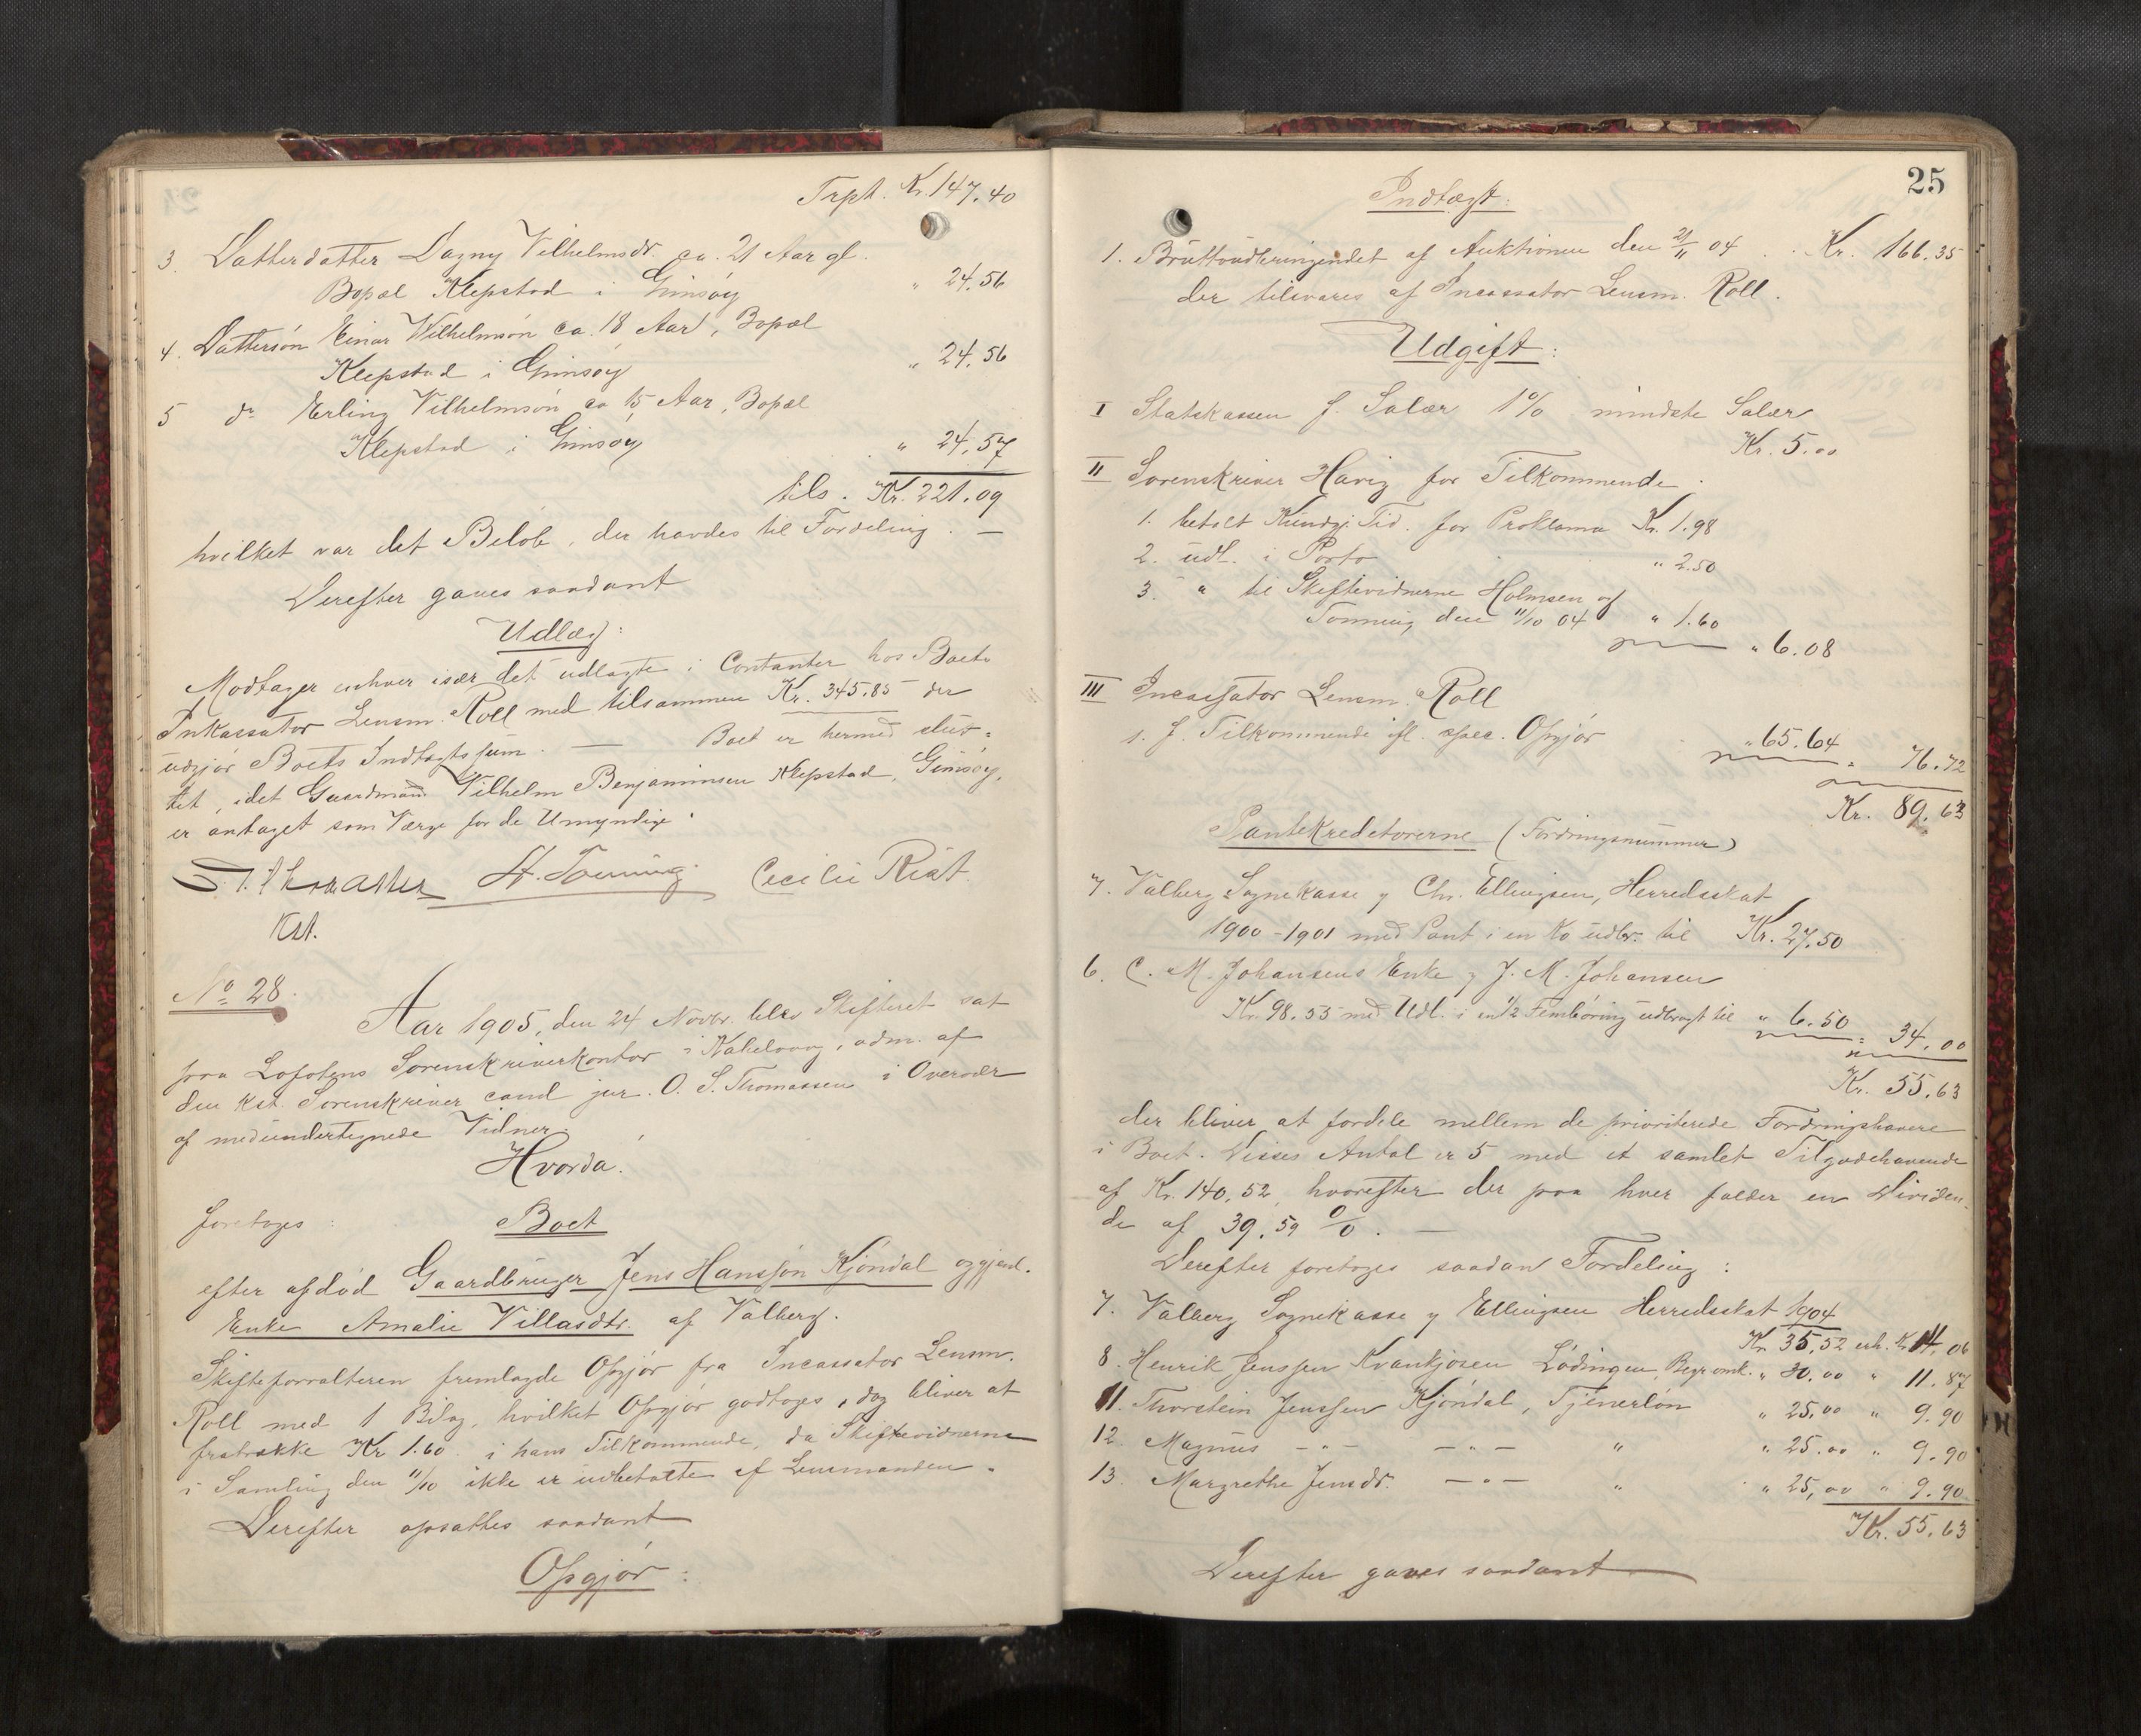 Trpt. Kr. 147.40
3. Datterdatter Dagny Vilhelmsdr. ca. 21 Aar gl.
Bopæl Klepstad i Gimsøy " 24.56
4. Dattersön Einar Wilhelmsön ca. 18 Aar, Bopæl
Klepstad i Gimsøy " 24.56
5 do Erling Vilhelmsön ca 15 Aar, Bopæl
Klepstad i Gimsöy " 24.57
tils. Kr. 221.09
hvilket var det Beløb, der havdes til Fordeling. —
Derefter gaves saadant
Udlæg:
Modtager enhver især det udlagte i Contanter hos Boets
Inkassator Lensm. Roll med tilsammen Kr. 345.85 der
udgjør Boets Indtægtssum. — Boet er hermed slut-
tet, idet Gaardmand Vilhelm Benjaminsen Klepstad, Gimsøy,
er antaget som Værge for de Umyndige.
O. S. Thomassen H. Tonning Cecilie Rist
Kst.
No 28.
Aar 1905, den 24 Novbr. blev Skifteret sat
paa Lofotens Sorenskriverkontor i Kabelvaag, adm. af
den kst. Sorenskriver cand jur. O. S. Thomassen i Overvær
af medundertegnede Vidner.
Hvorda:
foretoges:
Boet
efter afdød Gaardbruger Jens Hanssøn Kjøndal og gjenl.
Enke Amalie Villasdtr. af Valberg.
Skifteforvalteren fremlagde Opgjør fra Incassator Lensm.
Roll med 1 Bilag, hvilket Opgjør godtoges, dog bliver at
fratrække Kr 1.60 i hans Tilkommende, da Skiftevidnerne
i Samling den 11/10 ikke er udbetalte af Lensmanden.
Derefter opsattes saadant
Opgjør:
25
Indtægt:
1. Bruttoudbringendet af Auktionen den 21/11 04 . . Kr. 166.35
der tilsvares af Incassator Lensm. Roll.
Udgift:
I Statskassen f. Salær 1% mindste Salær
Kr. 5.00
II Sorenskriver Havig for Tilkommende.
1. betalt Kundgj. Tid. for Proklama Kr. 1.98
2. udl. i Porto " 2.50
3. " til Skiftevidnerne Holmsen og
Tonning den 11/10 04 " 1.60
" 6.08
III Incassator Lensm. Roll
1. f. Tilkommende ifl. spec. Opgjør
" 65.64 " 76.72
Kr. 89.63
Pantekreditorerne (Fordringsnummer)
7. Valberg Sognekasse v Chr. Ellingsen, Herredsskat
1900-1901 med Pant i en Ko udbr. til Kr. 27.50
6. C. M. Johansens Enke v J. M. Johansen
Kr. 98.55 med Udl. i en 1/2 Fembøring udbragt til " 6.50 " 34.00
Kr. 55.63
der bliver at fordele mellem de prioriterede Fordringshavere
i Boet. Disses Antal er 5 med et samlet Tilgodehavende
af Kr. 140,52, hvorefter der paa hver falder en Dividen-
de af 39.59 %. —
Derefter foretoges saadan Fordeling:
7. Valberg Sognekasse v Ellingsen Herredsskat 1904
Kr. 35,52 erh. Kr 14.06
8. Henrik Jenssen Kvankjosen Lödingen, Begr. omk. " 30.00 " 11.87
11. Thorstein Jenssen Kjöndal, Tjenerløn " 25,00 " 9.90
12. Magnus — " — — " — " " 25.00 " 9.90
13. Margrethe Jensdr. — " — " " 25,00 " 9.90
Kr. 55.63
Derefter gaves saadant